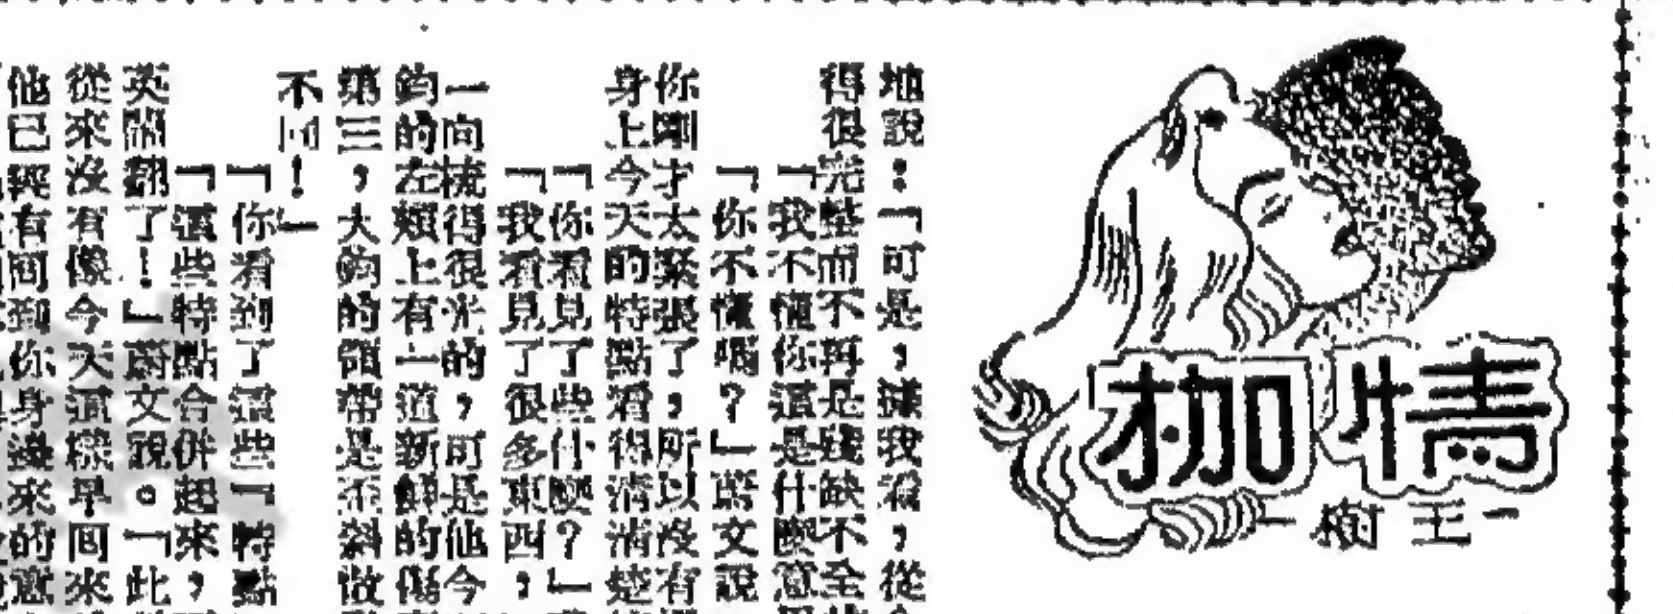 情枷
－王樹－
地說：「可是，據我看，從
得很完整而不再是殘缺不全
「我不懂你這是什麼意
「你不懂嗎？」蔚文說
你剛才太緊張了，所以沒有
身上今天的特點看得清清楚
「你看見了些什麼？」
「我看見了很多東西，
一向梳得很光的，可是他今
鈞的左頰上有一道新鮮的傷
第三，大鈞的領帶是歪斜
不同！」
「你看到了這些『特點
「這些特點合併起來，
英鬧翻了！」蔚文說。「此
從來沒有像今天這樣早回來
他已經有回到你身邊來的意